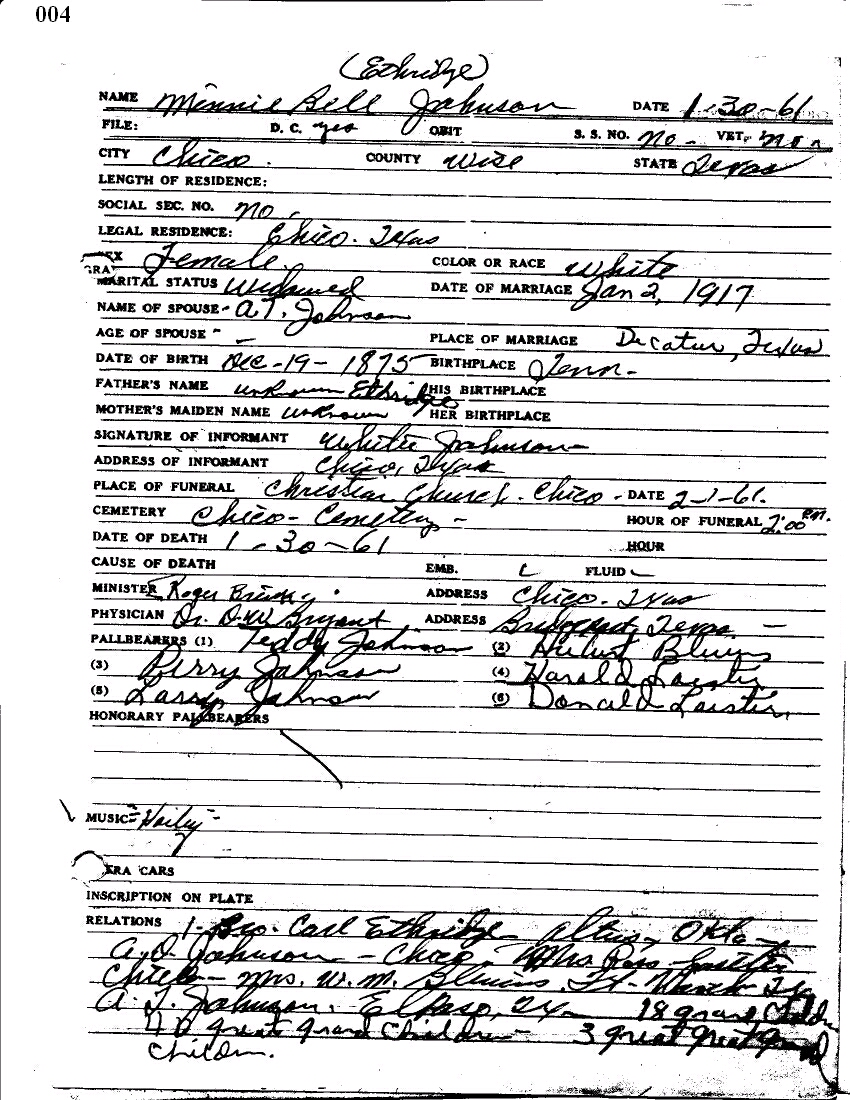 004
(Ethridge)
NAME Minnie Bell Johnson DATE 1-30-61
FILE: D. C. yes OBIT S. S. NO. no - VET. no
CITY Chico. COUNTY Wise STATE Texas
LENGTH OF RESIDENCE:
SOCIAL SEC. NO. no.
LEGAL RESIDENCE: Chico. Texas
EX Female COLOR OR RACE White
GRA
MARITAL STATUS Widowed DATE OF MARRIAGE Jan 2, 1917
NAME OF SPOUSE- A.T. Johnson
AGE OF SPOUSE - - PLACE OF MARRIAGE Decatur, Texas
DATE OF BIRTH Dec-19-1875 BIRTHPLACE Tenn-
FATHER'S NAME unknown Ethridge HIS BIRTHPLACE
MOTHER'S MAIDEN NAME unknown HER BIRTHPLACE
SIGNATURE OF INFORMANT Johnson
ADDRESS OF INFORMANT Chico, Texas
PLACE OF FUNERAL Christian Church. Chico - DATE 2-1-61.
CEMETERY Chico - Cemetery - HOUR OF FUNERAL 2:00 P.M.
DATE OF DEATH 1-30-61 HOUR
CAUSE OF DEATH EMB. FLUID
MINISTER Roger ADDRESS Chico. Texas
PHYSICIAN Dr. Bryant ADDRESS Bridgeport, Texas -
PALLBEARERS (1) Teddy Johnson (2)
(3) Perry Johnson (4) Harold
(5) Larry Johnson (6) Donald
HONORARY PALLBEARERS
MUSIC-
TRA CARS
INSCRIPTION ON PLATE
RELATIONS 1- Bro. Carl Ethridge - Altus, Okla -
A.O. Johnson - Chico - Mrs
Chico - Mrs. W. M. Ft-Worth Tx
A. T. Johnson. El Paso, Tx - 18 grand Children
40 great grand Children - 3 great great grand
Children.